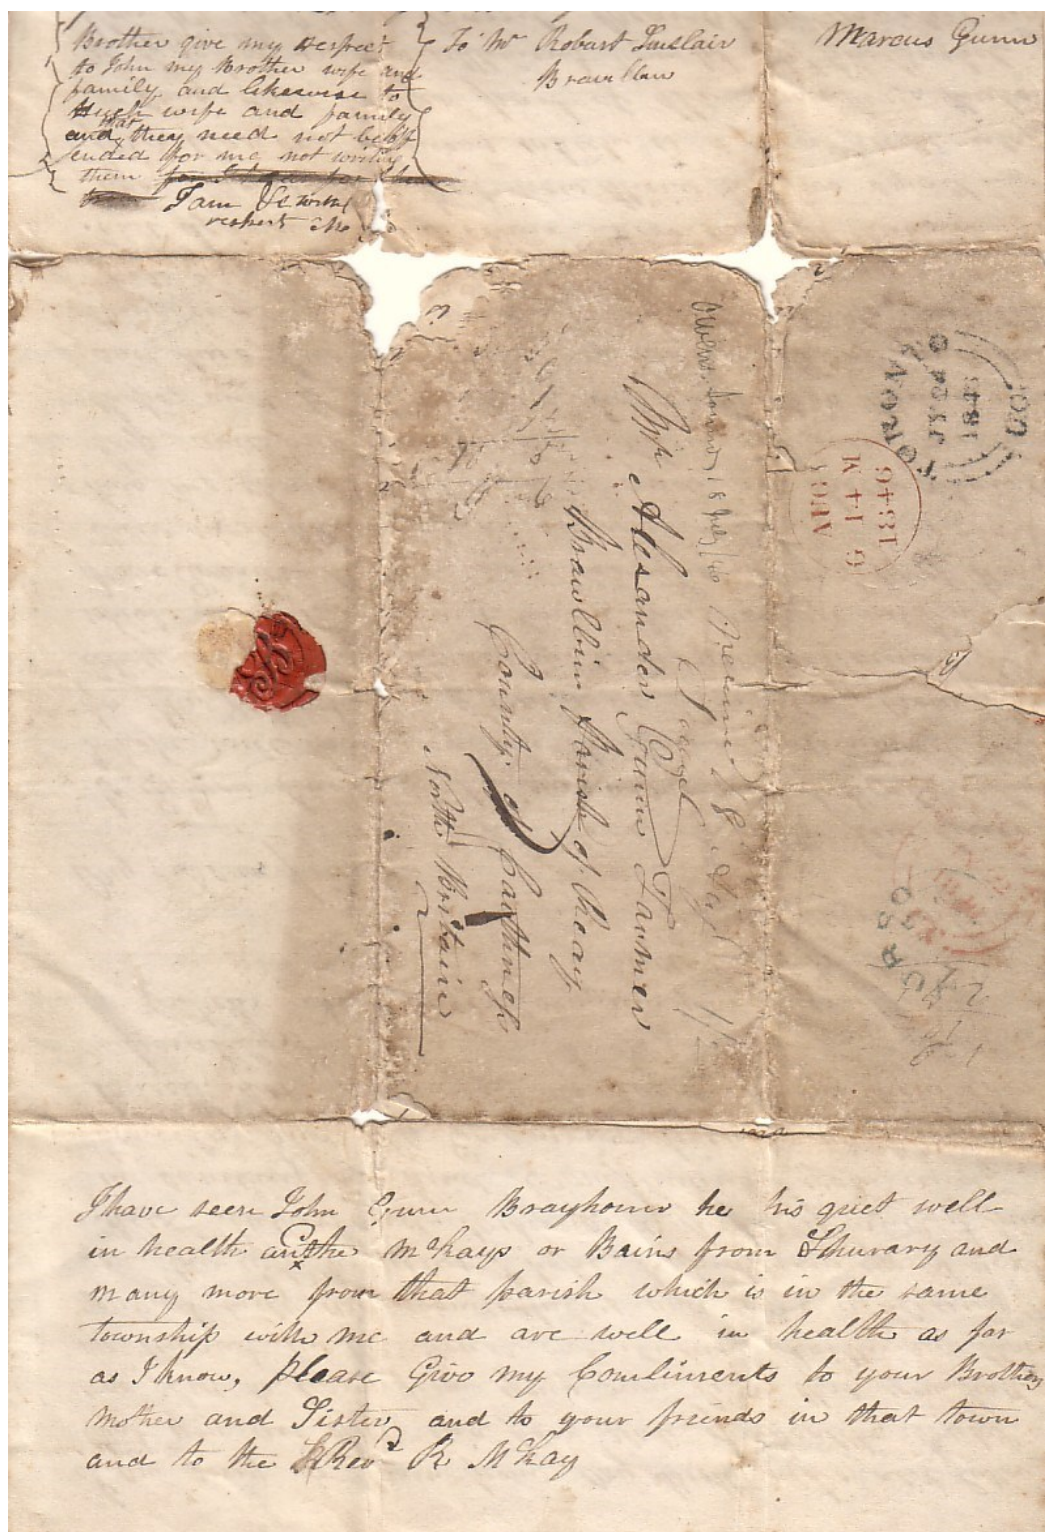 Brother give my respect
to John my Brother wife and
family and likewise to
Hugh wife and family
and that they need not be off
ended for me not writing
them
I am Sir with
respect
To Mr Robert Sinclair
Marcus Gunn
TORONTO
JY 24
1846
AUG
14 M
1846
Owens Sound 18 July /46
Mr Alexander Gunn Farmer
Brawlbin Parish of Reay
County of Caithness
North Britain
I have seen John Gunn Brayhour he his quiet well
in health and the McKays or Bains from Shurary and
many more from that parish which is in the same
township with me and are well in health as far
as I know, please Give my Comliments to your Brother
Mother and Sister and to your friends in that town
and to the Revd R McKay